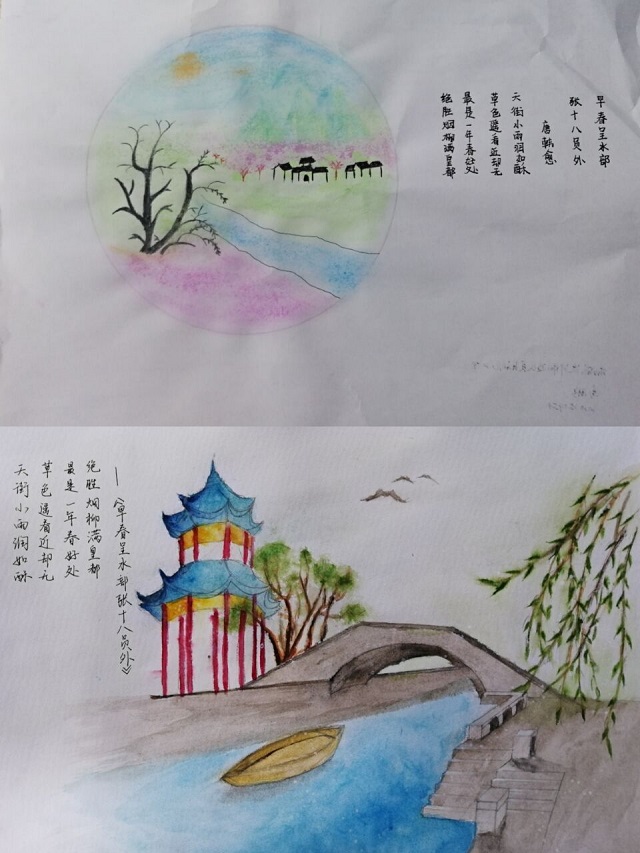 早春呈水部
张十八员外
唐韩愈
天街小雨润如酥
草色遥看近却无
最是一年春好处
绝胜烟柳满皇都
天街小雨润如酥
草色遥看近却无
最是一年春好处
绝胜烟柳满皇都
——《早春呈水部张十八员外》